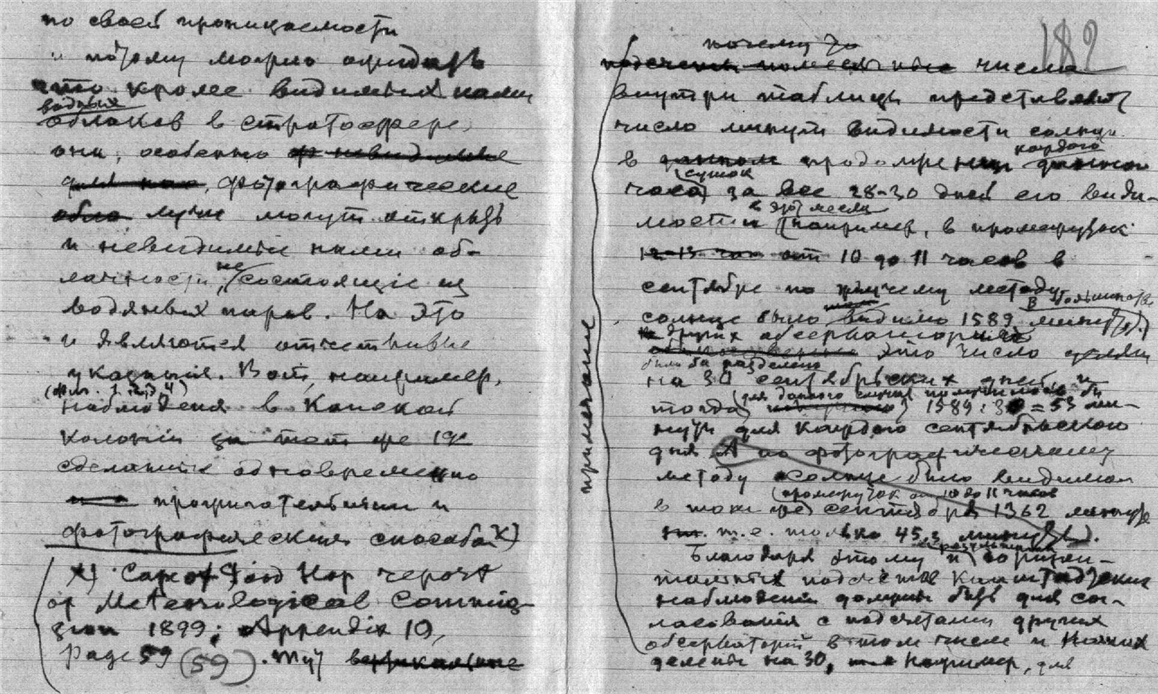 по своей проницаемости
и потому можно ожидать
что кроме видимых нами
водяных
облаков в стратосфере,
они, особенно
фотографические
лучи могут открыть
и невидимые нами об-
лачности, не состоящие из
водяных паров. На это
и являются отчетливые
указания. Вот, например,
наблюдения в Капской
колонии за тот же 18
сделанные одновременно
и
фотографическим способа х)
х) Cape of Good Hop report
of Meteorological Commis-
sion 1899; Appendix 10,
Page 59 (59). Тут
182
примечание
почему
числа
внутри таблицы представляют
число минут видимости солнца
в продолжении каждого
(суток
часа за все 28-30 дней его види-
мости в этот месяц
(например, в промежуток
12-13 час от 10 до 11 часов в
сентябре по методу
солнце было видимо 1589 минут).
В большинстве
других обсерваторий
это число
было бы разделено
на 30 сентябрьских дней и
тогда (для данного случая получилось бы
1589:30=53 ми-
нут для каждого сентябрьского
дня А по фотографическому
методу солнце было видимо
(промежуток от 10 до 11 часов
в том же сентябре 1362 минут
т.е. только 45,3 минут).
Благодаря этому и
подсчетов
наблюдений должны быть для со-
гласования с подсчетами других
обсерваторий в том числе и наших
делены на 30, например, для